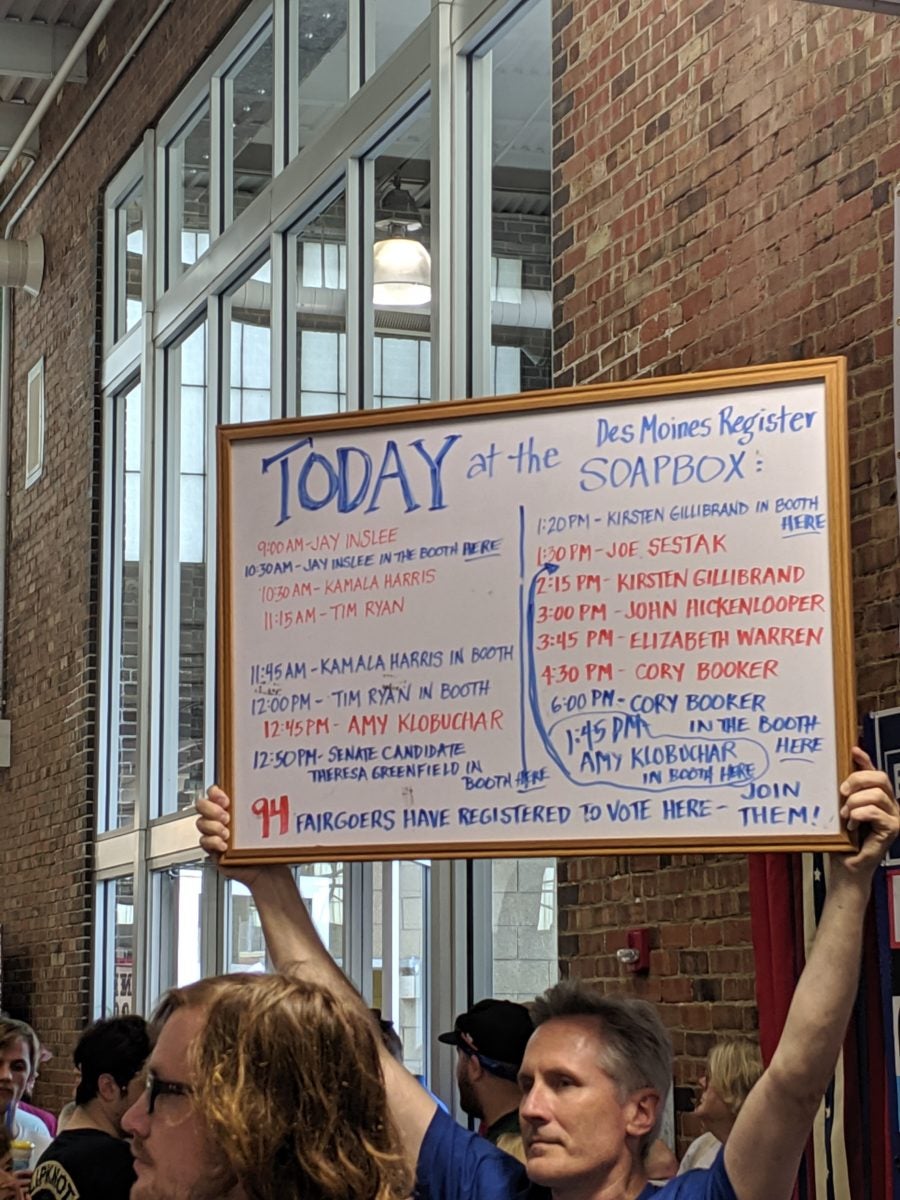 TODAY at the Des Moines Register
SOAPBOX:
9:00 AM - JAY INSLEE
10:30 AM - JAY INSLEE IN THE BOOTH HERE
10:30 AM - KAMALA HARRIS
11:15 AM - TIM RYAN
11:45 AM - KAMALA HARRIS IN BOOTH
12:00 PM - TIM RYAN IN BOOTH
12:45 PM - AMY KLOBUCHAR
12:50 PM - SENATE CANDIDATE
THERESA GREENFIELD IN
BOOTH HERE
1:20 PM - KIRSTEN GILLIBRAND IN BOOTH
HERE
1:30 PM - JOE SESTAK
2:15 PM - KIRSTEN GILLIBRAND
3:00 PM - JOHN HICKENLOOPER
3:45 PM - ELIZABETH WARREN
4:30 PM - CORY BOOKER
6:00 PM - CORY BOOKER
IN THE BOOTH
HERE
1:45 PM
AMY KLOBUCHAR
IN BOOTH HERE
94 FAIRGOERS HAVE REGISTERED TO VOTE HERE - JOIN
THEM!